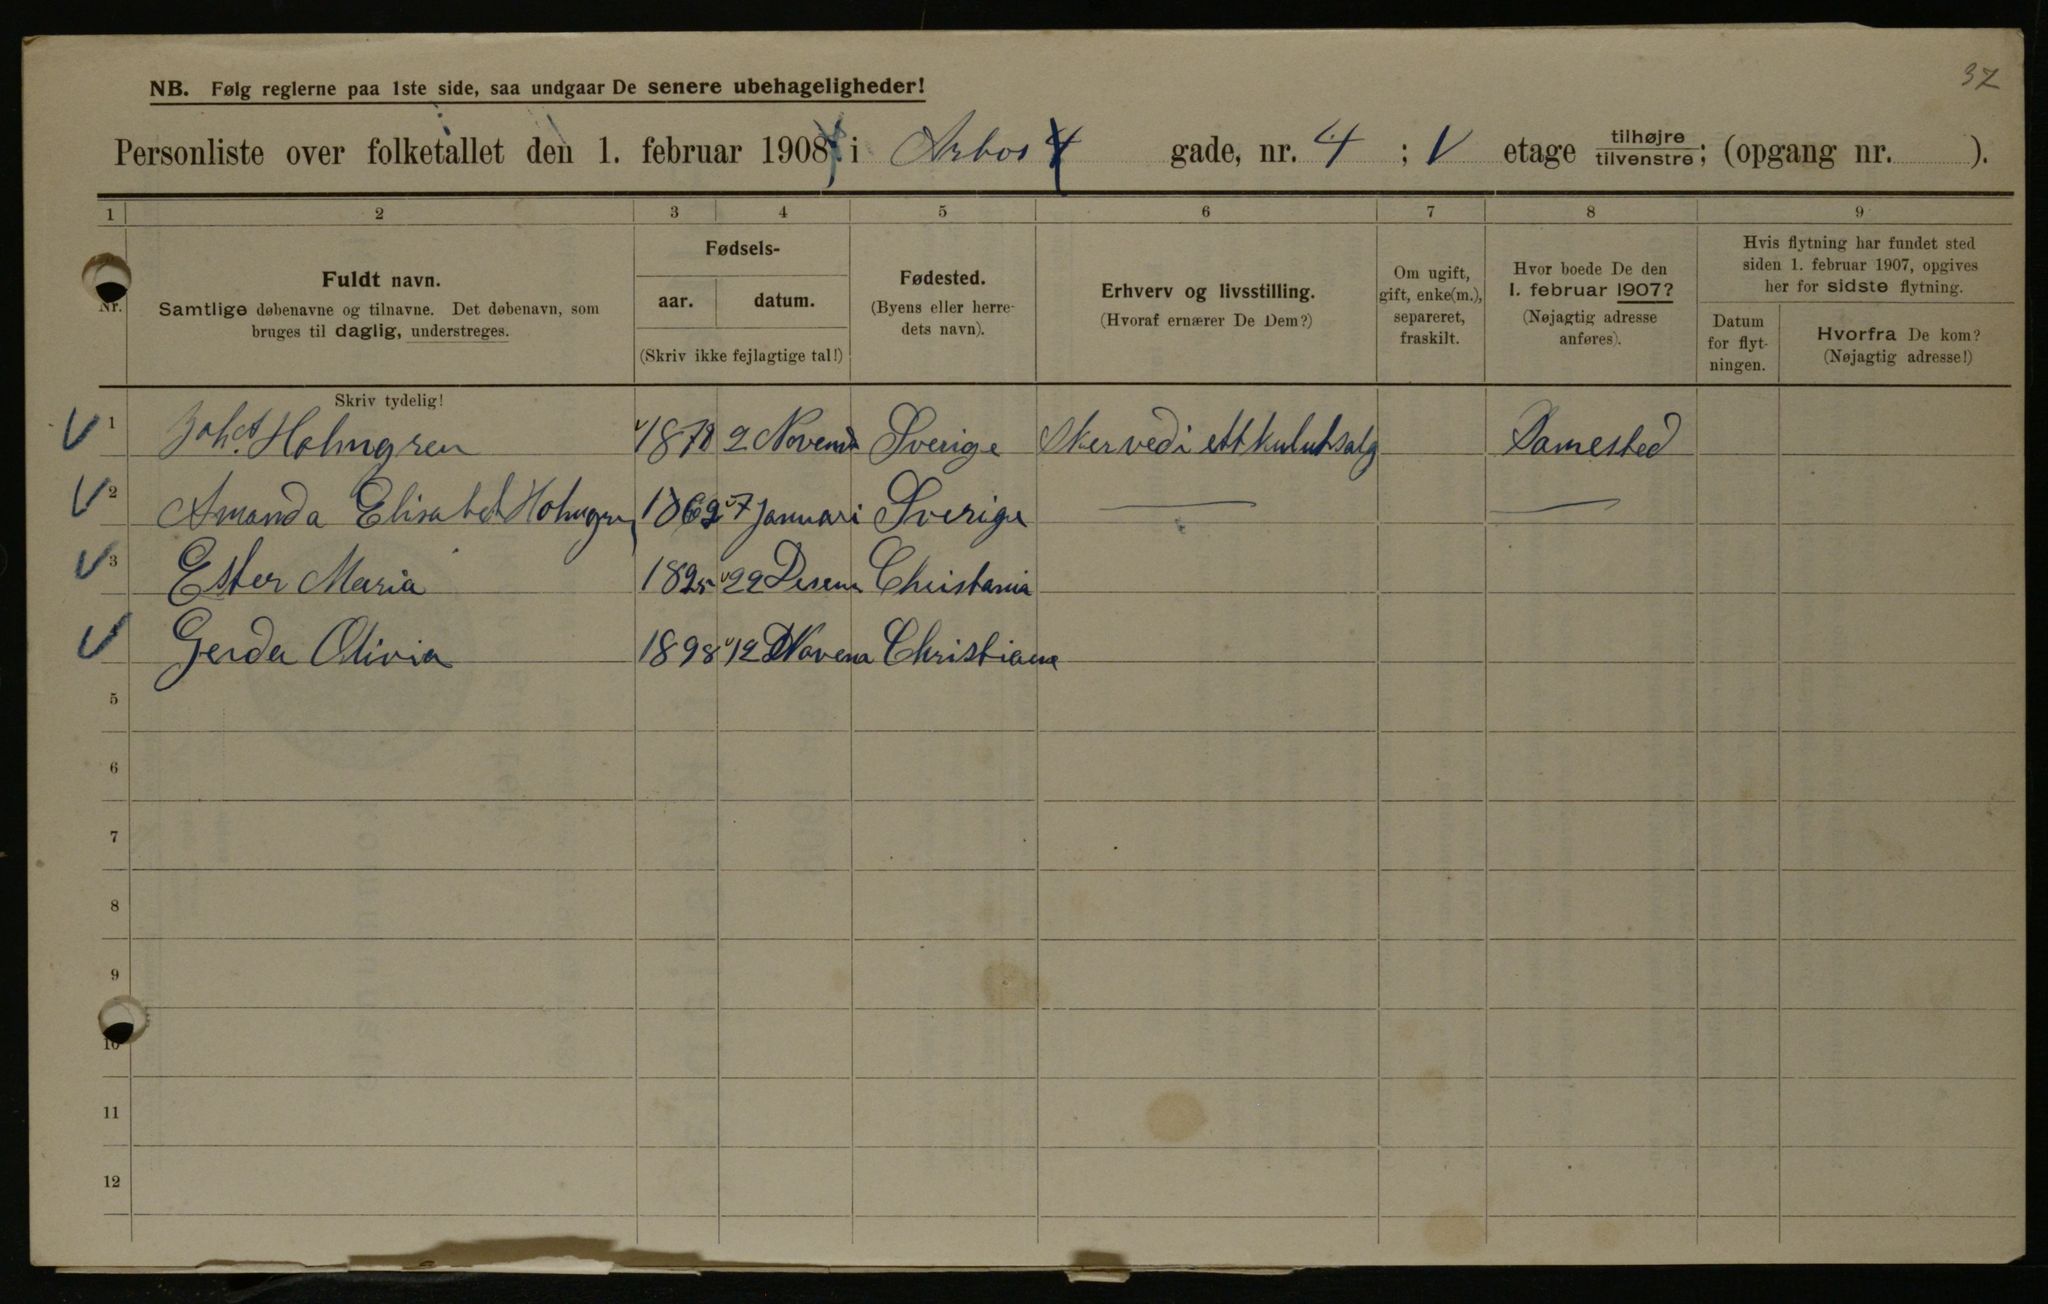 37
NB. Følg reglerne paa 1ste side, saa undgaar De senere ubehageligheder!
Personliste over folketallet den 1. februar 1908 i Arbos gade, nr. 4 ; V etage tilhøjre tilvenstre; (opgang nr. ).
1 2 3 4 5 6 7 8 9
Nr.
Fuldt navn.
Samtlige døbenavne og tilnavne. Det døbenavn, som
bruges til daglig, understreges.
Skriv tydelig!
Fødsels-
aar. datum.
(Skriv ikke fejlagtige tal!)
Fødested.
(Byens eller herre-
dets navn).
Erhverv og livsstilling.
(Hvoraf ernærer De Dem?)
Om ugift,
gift, enke(m.),
separeret,
fraskilt.
Hvor boede De den
1. februar 1907?
(Nøjagtig adresse
anføres).
Hvis flytning har fundet sted
siden 1. februar 1907, opgives
her for sidste flytning.
Datum
for flyt-
ningen.
Hvorfra De kom?
(Nøjagtig adresse!)
V 1 Holmgren 2 Novemb Sverige ved i ett kulutsalg Samested
V 2 Amanda Elisabet Holmgren 1869 7 Januari Sverige
V 3 Ester Maria 1895 22 Desem Christania
V Gerda Olivia 1898 12 Novem Christiana
5
6
7
8
9
10
11
12